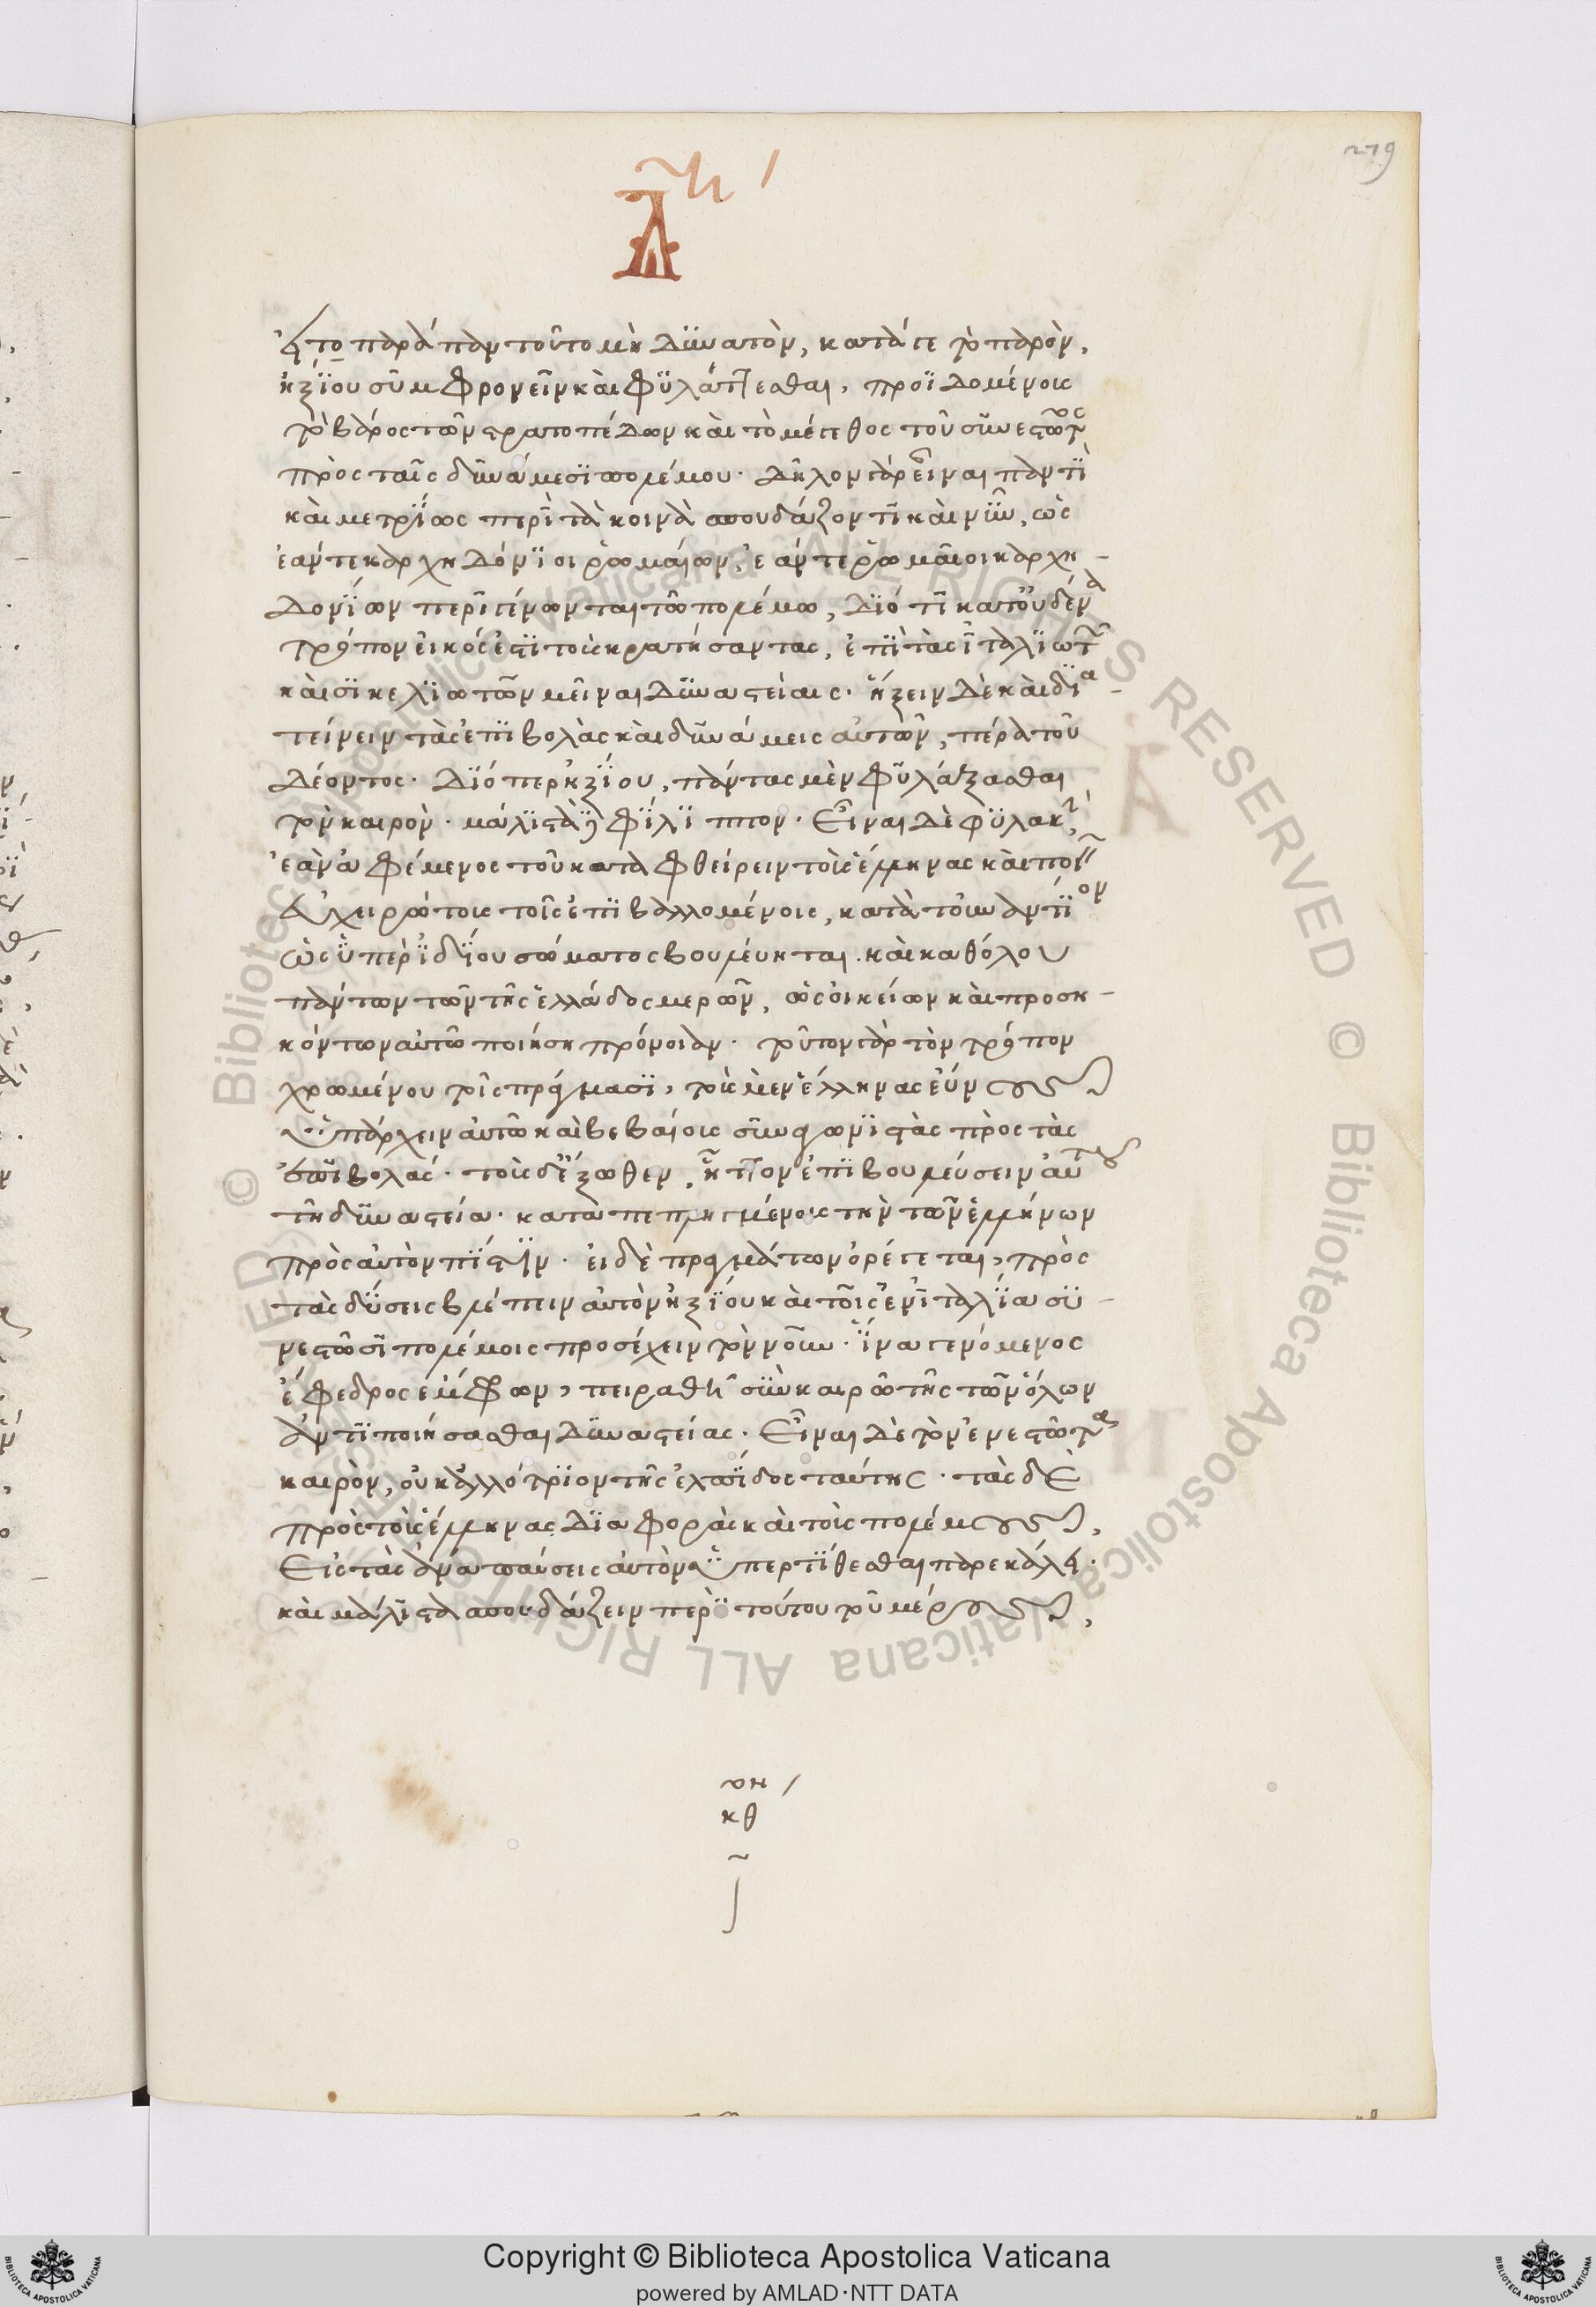 279
λη
εἰ τὸ παράπαν τοῦτο μὴ δϋνατὸν, κατά γε τὸ παρὸν,
ἠξίου συμφρονεῖν καὶ φυλάττεσθαι, προϊδομένοις
τὸ βάρος τῶν στρατοπέδων καὶ τὸ μέγεθος τοῦ συνεστῶτος
πρὸς ταῖς δυνάμεσι πολέμου. δῆλον γὰρ εἶναι παντὶ
καὶ μετρίως περὶ τὰ κοινὰ σπουδάζοντι καὶ νῦν, ὡς
ἐάν τε καρχηδόνιοι ῥωμαίων, ἐάν τε ῥωμαῖοι καρχη-
δονίων περιγένωνται τῶ πολέμω, διότι κατ' οὐδένα
τρόπον εἰκός ἐστι τοὺς κρατήσαντας, ἐπὶ τὰς ἰταλιωτῶν
καὶ σικελιωτῶν μεῖναι δυναστείαις. ἥξειν δὲ καὶ δια-
τείνειν τὰς ἐπιβολὰς καὶ δυνάμεις αὐτῶν, πέρα τοῦ
δέοντος. διόπερ ἠξίου, πάντας μὲν φυλάξασθαι
τὸν καιρὸν. μάλιστα δὲ φίλιππον. εἶναι δὲ φυλακὴν,
ἐὰν ἀφέμενος τοῦ καταφθείρειν τοὺς ἕλληνας καὶ ποιεῖν
εὐχειρώτους τοῖς ἐπιβαλλομένοις, κατὰ τοὐναντίον
ὡς ὑπὲρ ἰδίου σώματος βουλεύηται. καὶ καθόλου
πάντων τῶν τῆς ἑλλάδος μερῶν, ὡς οἰκείων καὶ προση-
κόντων αὐτῶ ποιήση πρόνοιαν. τοῦτον γὰρ τὸν τρόπον
χρωμένου τοῖς πράγμασι, τοὺς μὲν ἕλληνας εὔνους
ὑπάρχειν αὐτῶ καὶ βεβαίους συναγωνιστὰς πρὸς τὰς
ἐπιβολάς. τοὺς δ' ἔξωθεν, ἧττον ἐπιβουλεύσειν αὐτοῦ
τῆ δυναστεία. καταπεπληγμένους τὴν τῶν ἑλλήνων
πρὸς αὐτὸν πίστιν. εἰ δὲ πραγμάτων ὀρέγεται, πρὸς
τὰς δύσεις βλέπειν αὐτὸν ἠξίου καὶ τοῖς ἐν ἰταλία συ-
νεστῶσι πολέμοις προσέχειν τὸν νοῦν. ἵνα γενόμενος
ἔφεδρος ἔμφρων, πειραθῆ σὺν καιρῶ τῆς τῶν ὅλων
ἀντιποιήσασθαι δυναστείας. εἶναι δὲ τὸν ἐνεστῶτα
καιρὸν, οὐκ ἀλλότριον τῆς ἐλπίδος ταύτης. τὰς δὲ
πρὸς τοὺς ἕλληνας διαφορὰς καὶ τοὺς πολέμους,
εἰς τὰς ἀναπαύσεις αὐτὸν ὑπερτίθεσθαι παρεκάλει.
καὶ μάλιστα σπουδάζειν περὶ τούτου τοῦ μέρους,
κθ
Copyright © Biblioteca Apostolica Vaticana
powered by AMLAD·NTT DATA